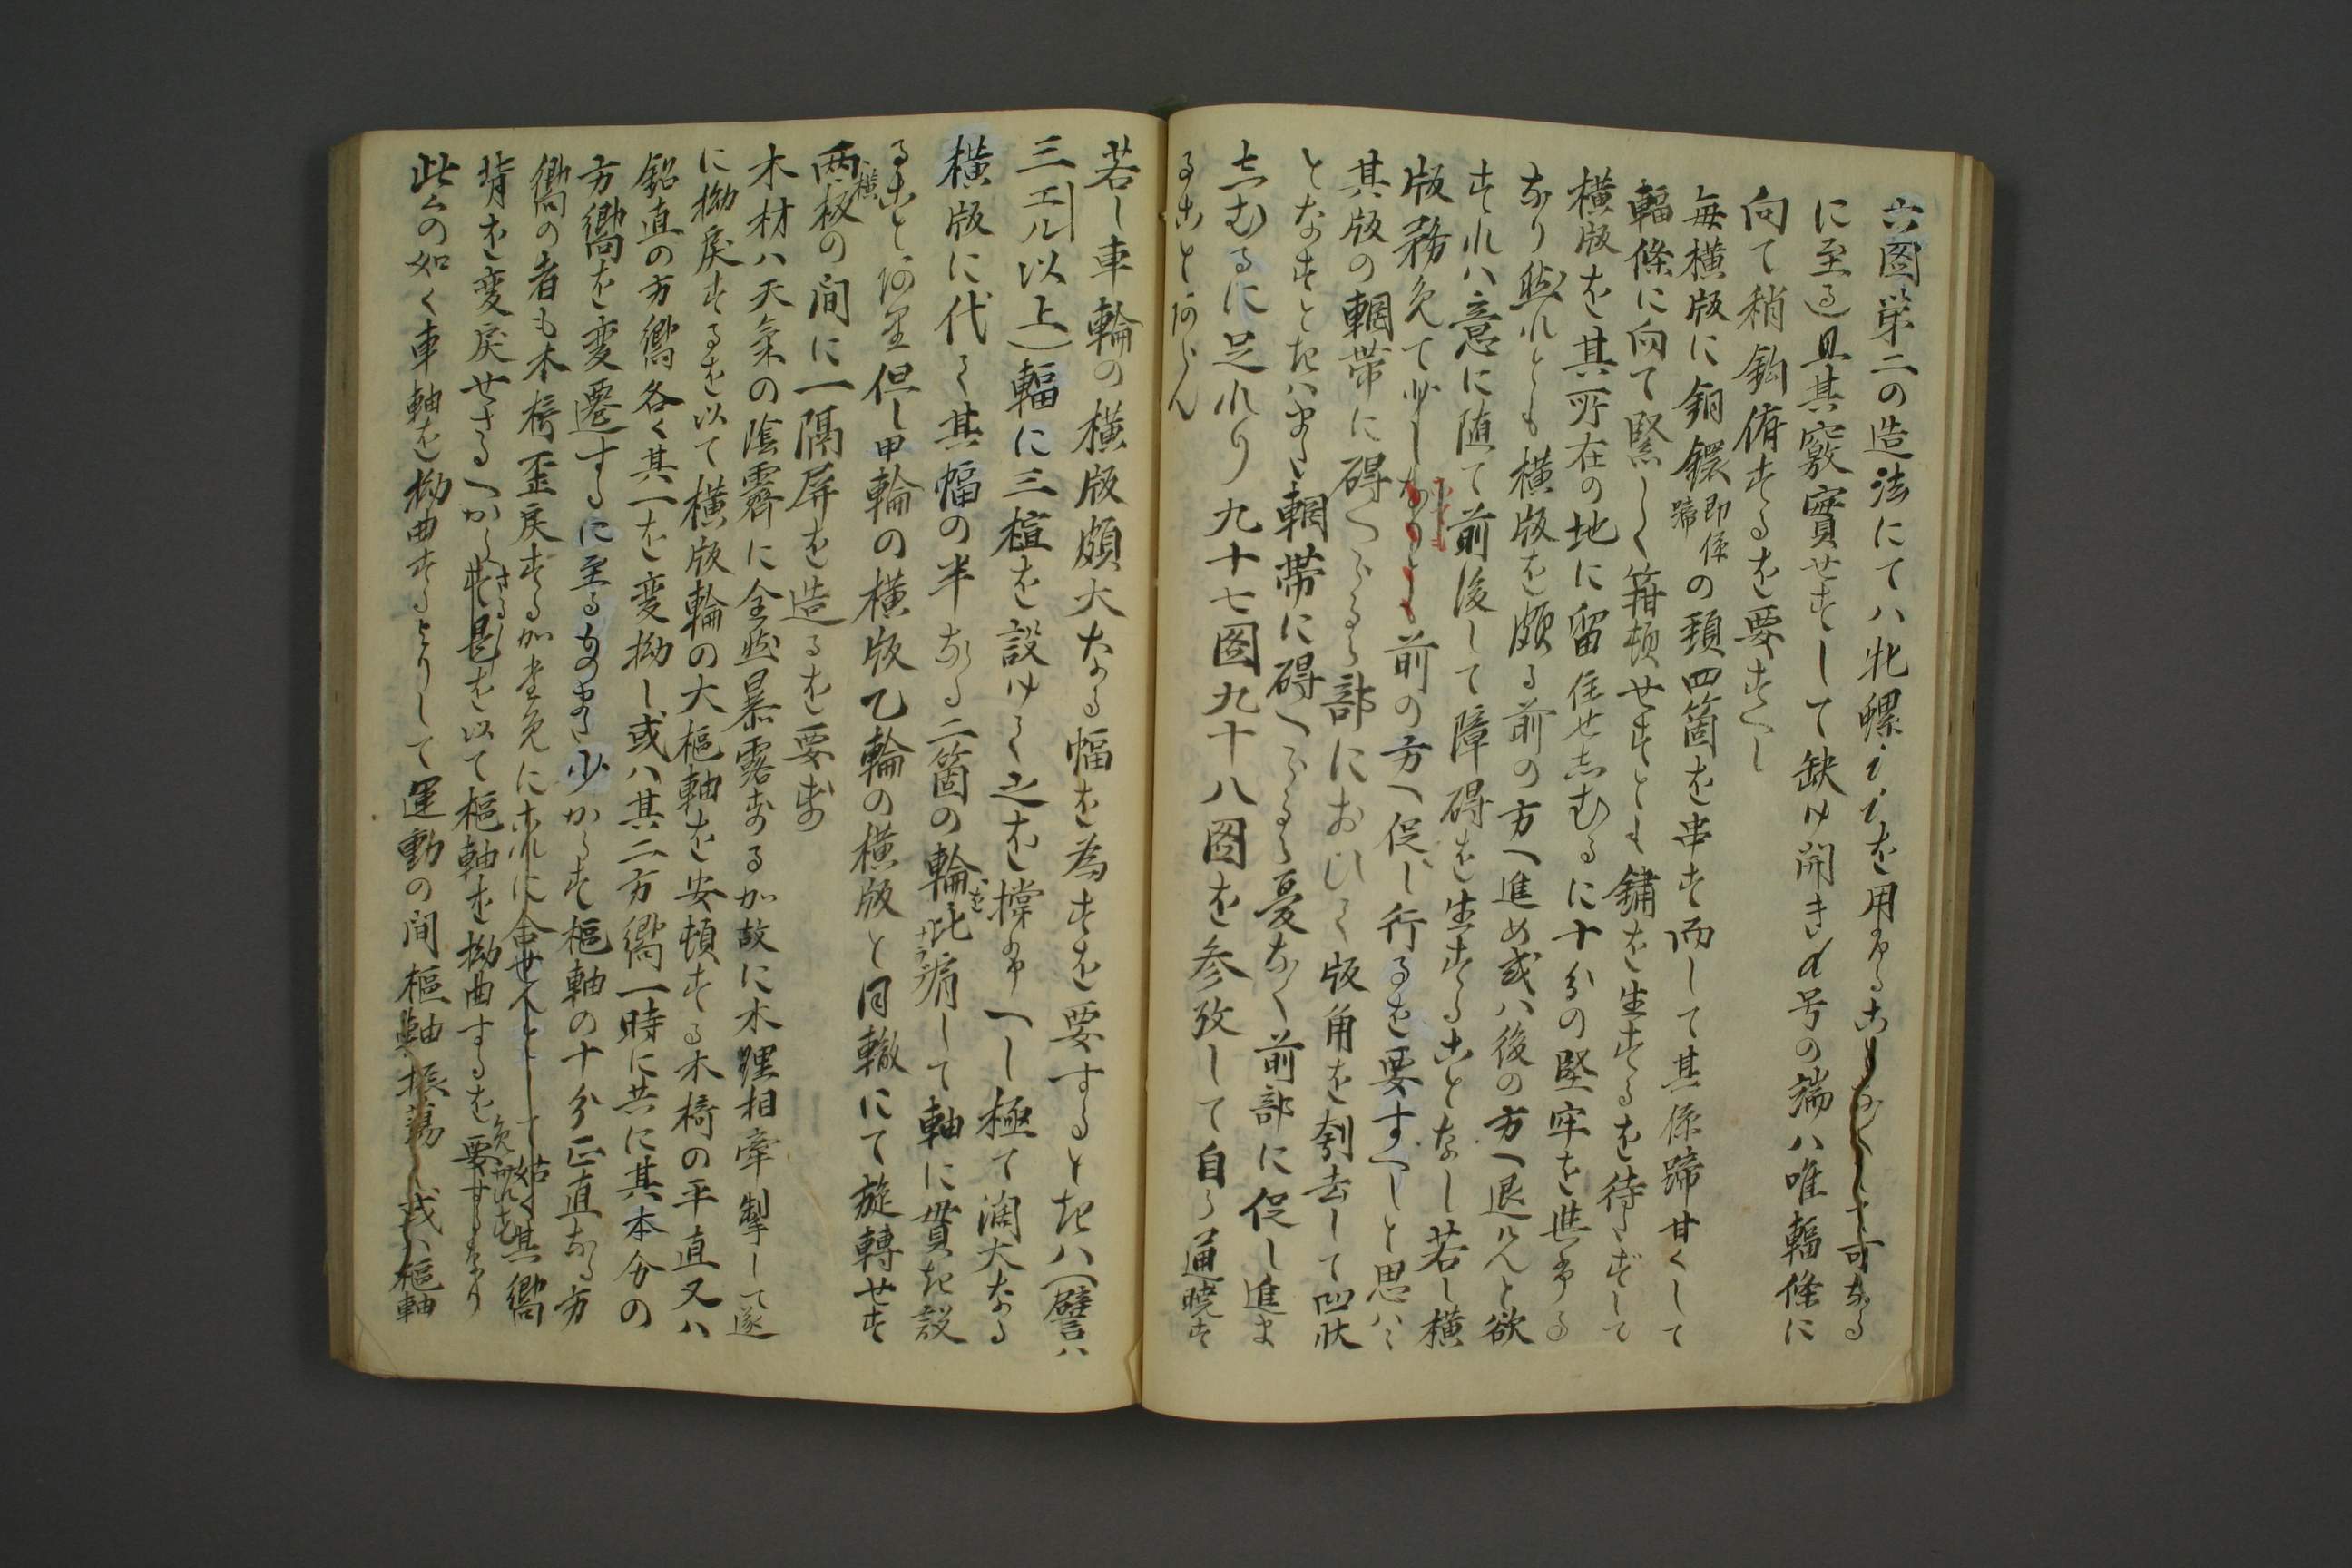 六図第二の造法にてハ牝螺i iを用ゆることなくして可なる
に至る且其竅實せすして缺け開きd号の端ハ唯輻條に
向て稍鈎俯するを要すへし
毎横版に銅鐶即係蹄の頚四箇を串す而して其係蹄甘くして
輻條に向て緊しく箝頓せすとも鏽を生するを待たすして
横版を其所在の地に留住せしむるに十分の堅牢を與ゆる
なり然れとも横版を頗る前の方へ進め或ハ後の方へ退んと欲
すれハ意に随て前後して障碍を生することなし若し横
版務めて少し前の方へ促し行るを要すへしと思ハヽ
其版の輞帯に碍へらるゝ部においてハ版角を刳去して凹状
となすときハ輞帯に碍へらるゝ憂なく前部に促し進ま
しむるに足れり九十七図九十八図を参攷して自ら通暁す
ることあらん
若し車輪の横版頗大なる幅を為すを要するときハ(譬ハ
三エル以上)輻に三楦を設けて之を撐ゆへし極て濶大なる
横版に代て其幅の半なる二箇の輪を比肩して軸に貫き設
ることあり但し甲輪の横版乙輪の横版と同轍にて旋轉せす
両横板の間に一隔屏を造るを要す
木材ハ天氣の陰霽に全然暴露するか故に木理相牽掣して遂
に拗戻するを以て横版輪の大樞軸を安頓する木檇の平直又ハ
鉛直の方嚮各く其一を変拗し或ハ其二方嚮一時に共に其本分の
方嚮を変遷するに至るもの少からす樞軸の十分正直なる方
嚮の者も木檇歪戻するか為めにこれに合せんとして始く其嚮
背を変戻せさるへからす是を以て樞軸を拗曲するを要するなり
此の如く車軸を拗曲するよりして運動の間樞軸振蕩し或ハ樞軸